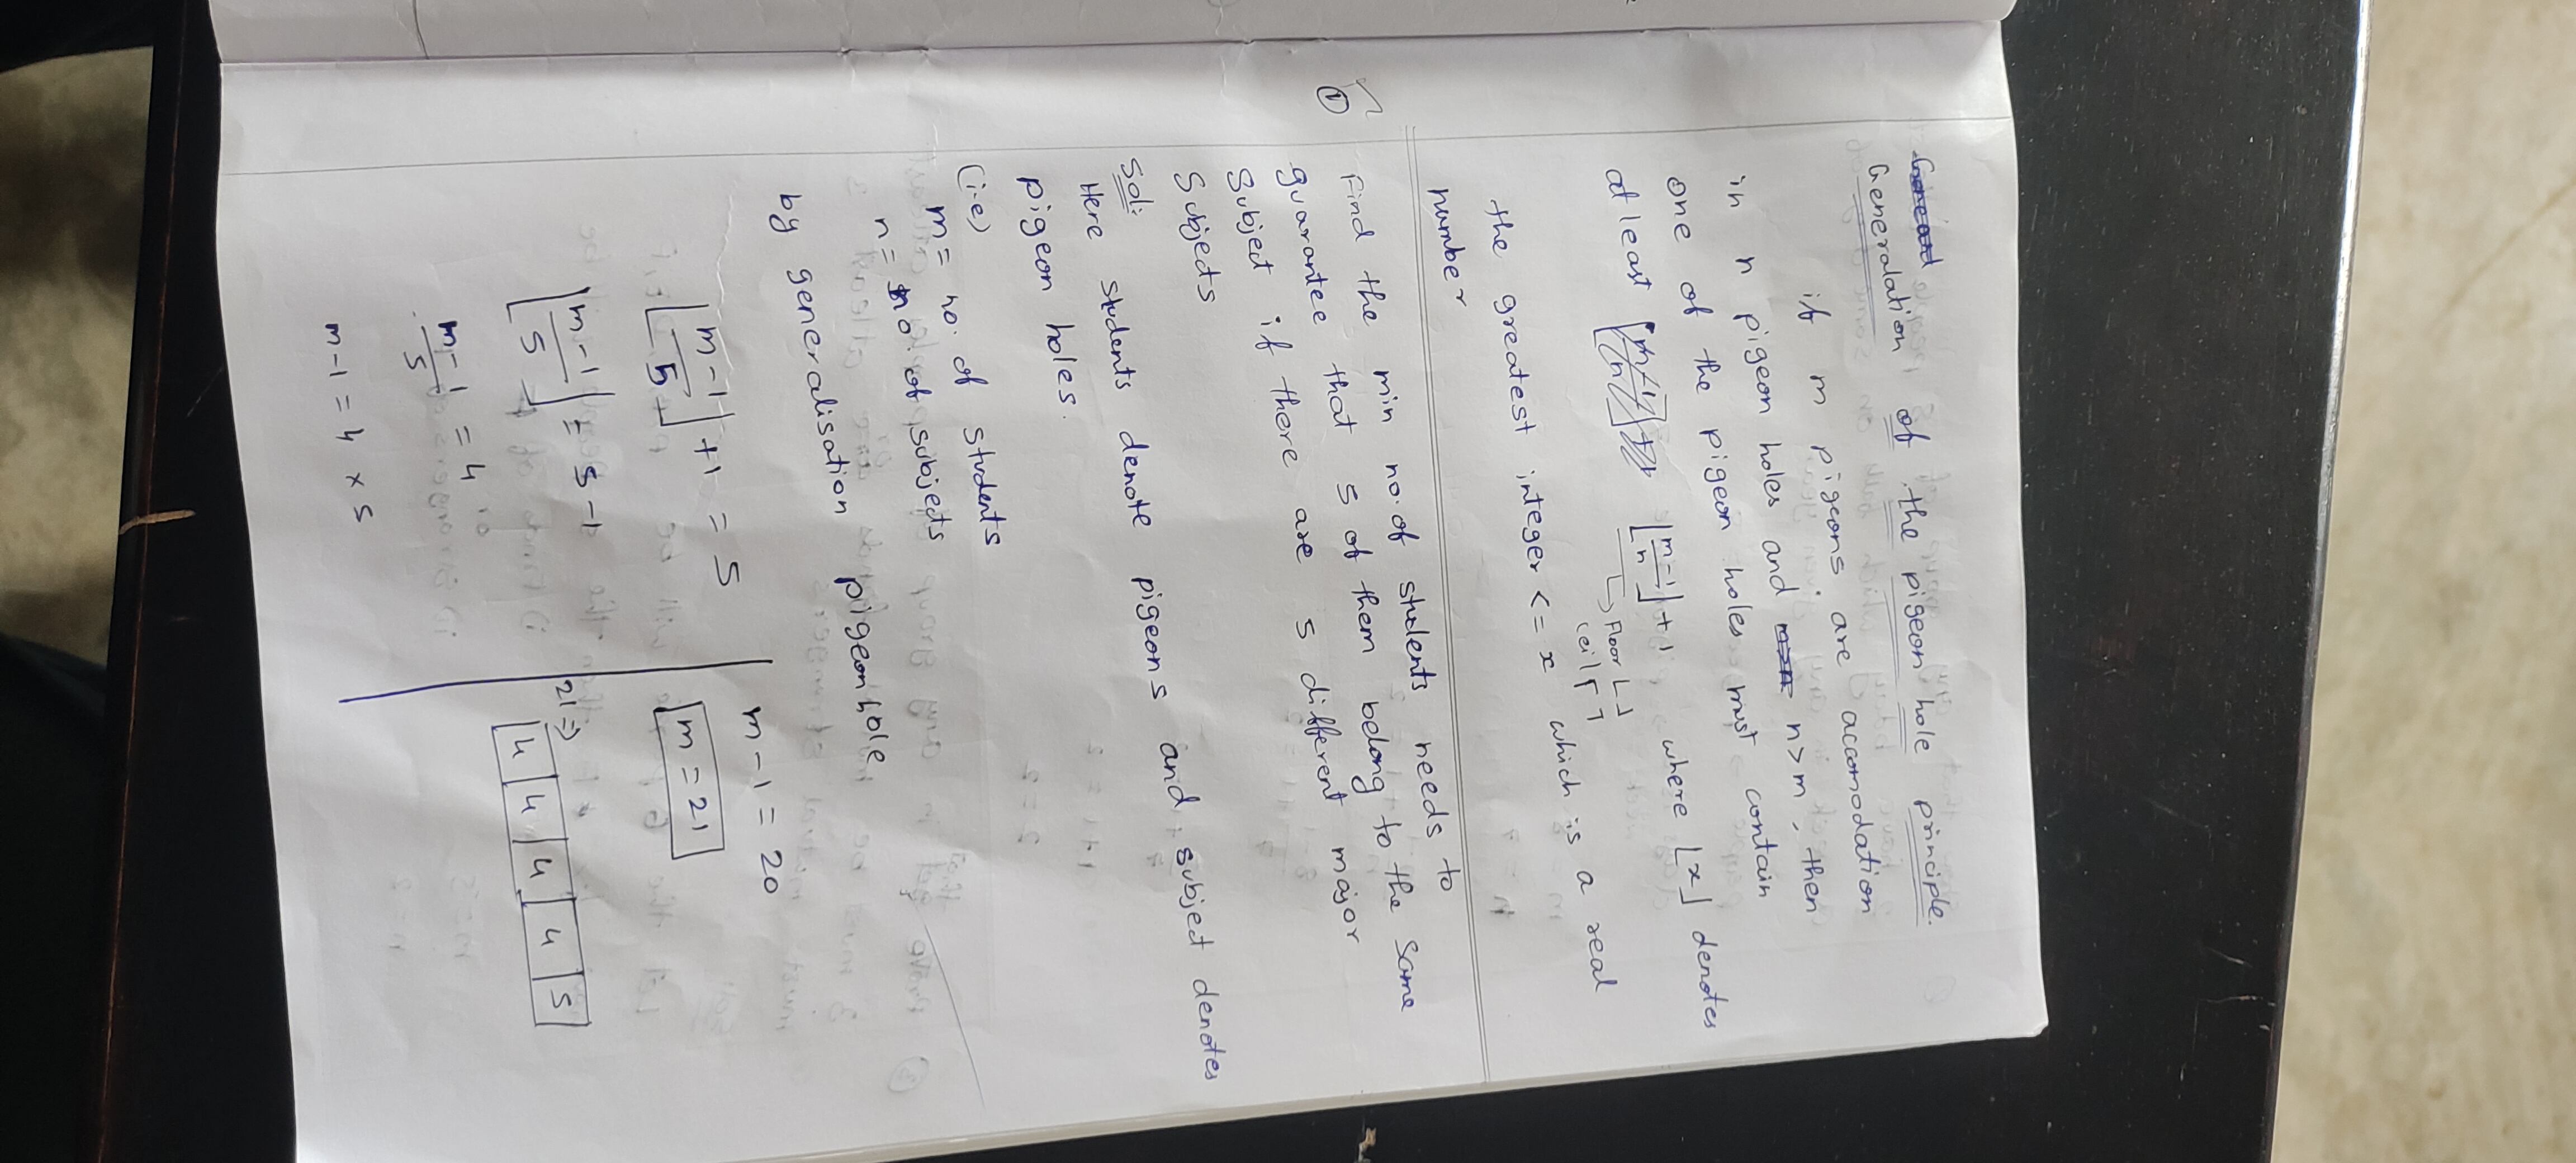 Generalation of the pigeon hole principle.
if m pigeons are accomodation
in n pigeon holes and n>m, then
one of the pigeon holes must contain
at least ⌊m-1/n⌋+1 where ⌊x⌋ denotes
→ Floor ⌊ ⌋
ceil ⌈ ⌉
the greatest integer <= x which is a real
number
① Find the min no. of students needs to
guarantee that 5 of them belong to the same
subject if there are 5 different major
subjects
Sol:
Here students denote pigeons and subject denotes
pigeon holes.
(i.e)
m = no. of students
n = no. of subjects
by generalisation pigeon hole
⌊m-1/5⌋+1 = 5
⌊m-1/5⌋ = 5-1
m-1/5 = 4
m-1 = 4 x 5
m-1 = 20
m = 21
21 =>
4 4 4 4 5